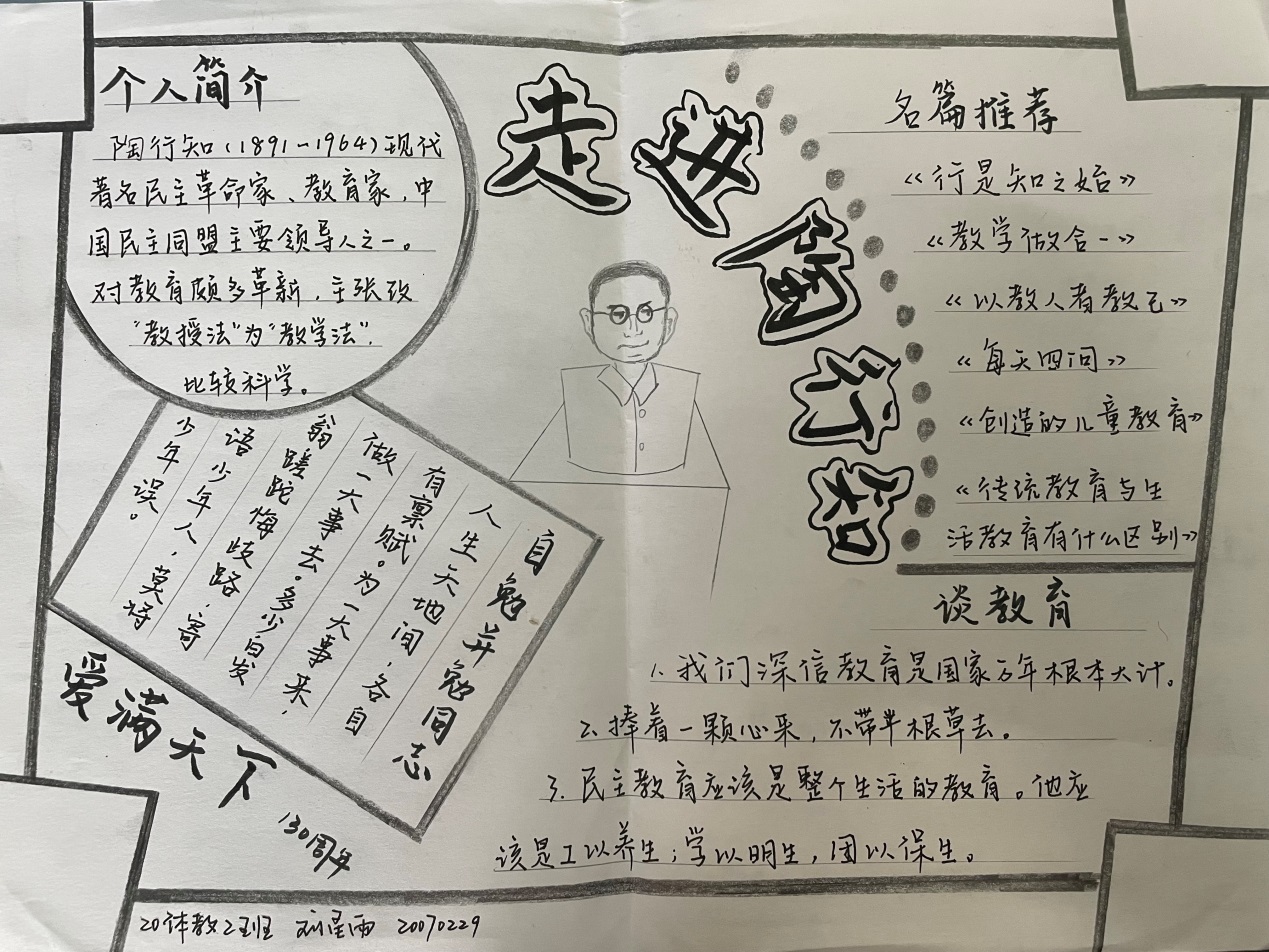 走进陶行知
个人简介
陶行知(1891-1964)现代
著名民主革命家、教育家,中
国民主同盟主要领导人之一。
对教育颇多革新,主张改
“教授法”为“教学法”,
比较科学。
自勉并勉同志
人生天地间,各自
有禀赋。为一大事来,
做一大事去。多少白发
翁蹉跎悔歧路,寄
语少年人,莫将
少年误。
爱满天下
130周年
名篇推荐
《行是知之始》
《教学做合一》
《以教人者教己》
《每天四问》
《创造的儿童教育》
《传统教育与生
活教育有什么区别》
谈教育
1.我们深信教育是国家万年根本大计。
2.捧着一颗心来,不带半根草去。
3.民主教育应该是整个生活的教育。他应
该是工以养生;学以明生,团以保生。
20体教2班 刘星雨 20070229